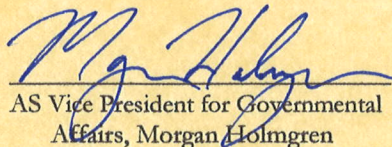 Morgan Holmgren
AS Vice President for Governmental
Affairs, Morgan Holmgren